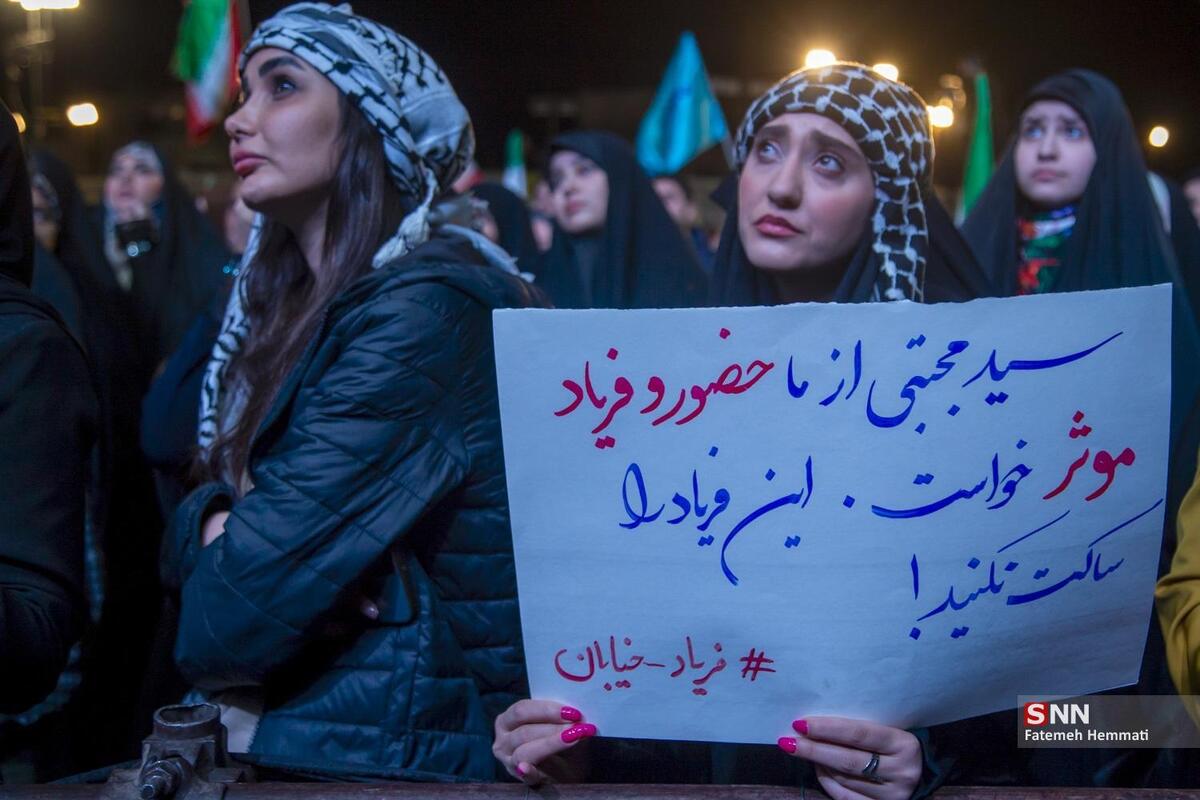 سید مجتبی از ما حضور و فریاد
موثر خواست. این فریاد را
ساکت نکنید!
# فریاد-خیابان
SNN
Fatemeh Hemmati